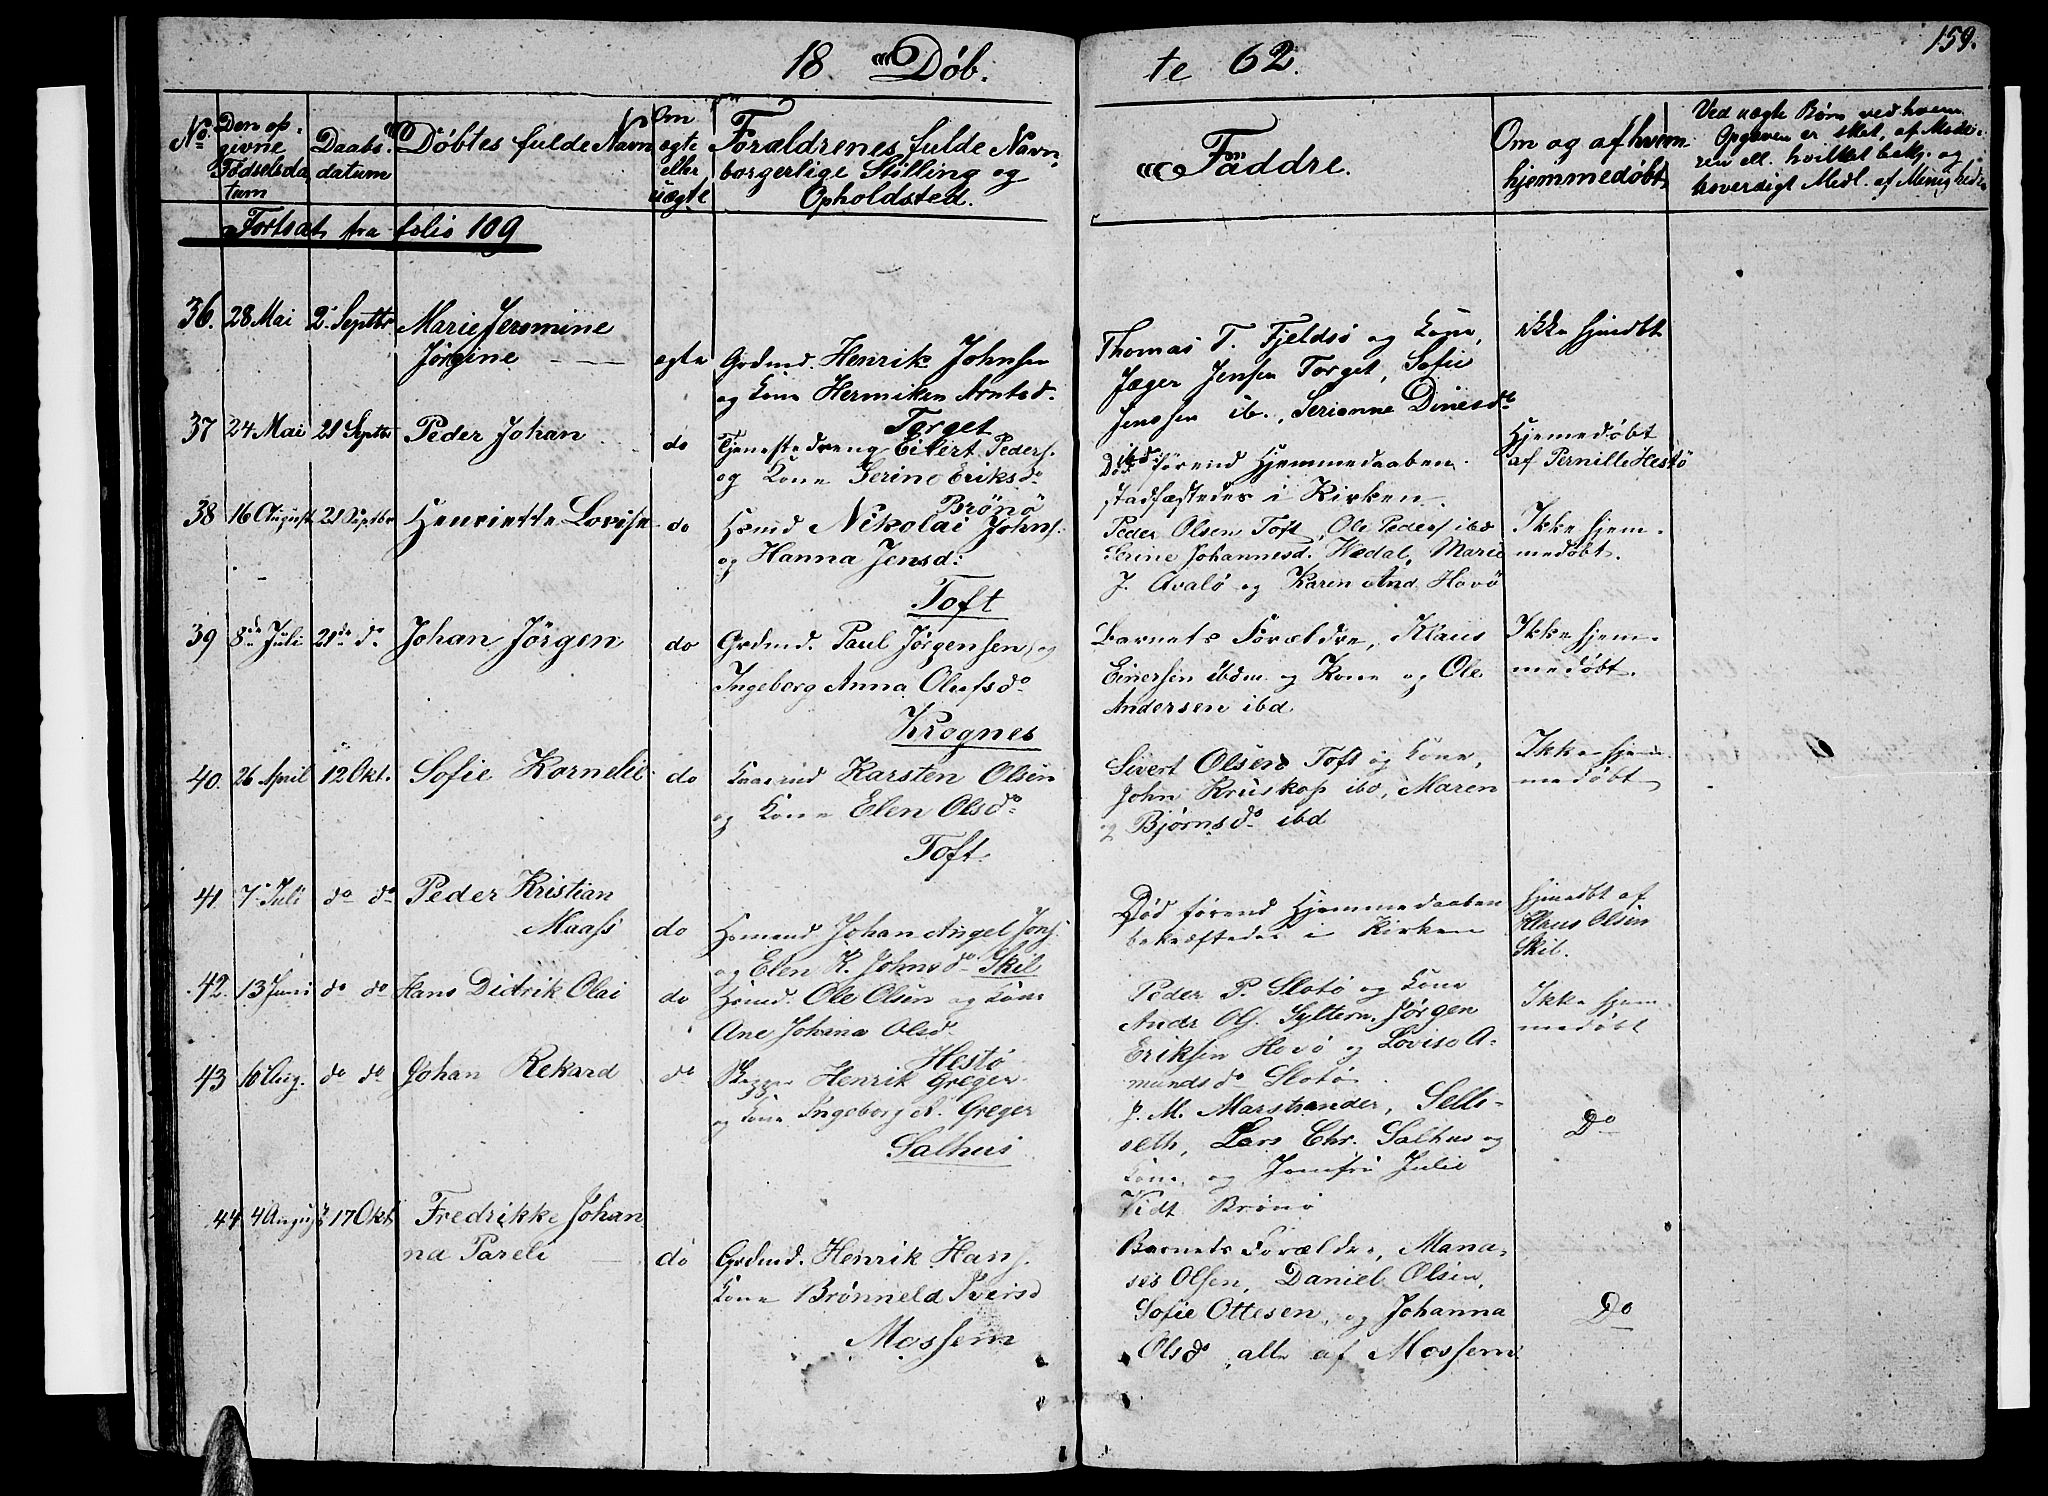 159.
18 Døb.
te 62.
No
Den op-
givne
Fødselsda
tum
Daabs-
datum
Døbtes fulde Navn
Om
ægte
eller
uægte
Forældrenes fulde Navn
borgerlige Stilling og
Opholdsted.
Faddre.
Om og af hvem
hjemmedøbt
Ved uægte Børn ved hvem
Opgaven er skeet, af Mode-
ren ell. hvilket bekj. og
troverdigt Medl. af Menigheden
Fortsat fra folio 109
36. 28 Mai 2 Septbr Marie Jeromine
Jørgine
ægte
Grdmd. Henrik Johnsen
og Kone Hermiken Arntsd.
Torget
Thomas T. Fjeldsø og Kone,
Jæger Jensen Torget, Sofie
Jenssen ib., Serianne Dinesd.
ibd
ikke hjmdbt
37 24 Mai 21 Septbr Peder Johan
do
Tjenestedreng Eilert Peders.
og Kone Serine Eriksd.
Brønø
Død førend Hjemmedaaben
stadfæstedes i Kirken.
Hjemedøbt
af Pernille Hestø
38 16 August 21 Septbr Henriette Lovise
do
Hsmd Nikolai Johns.
og Hanna Jensd:
Toft
Peder Olsen Toft, Ole Peders ibd
Serine Johannesd. Hædal, Marie
J. Qvalø og Karen And. Hovø
Ikke hjem-
medøbt.
39 8de Juli 21de do Johan Jörgen
do
Grdmd. Paul Jørgensen og
Ingeborg Anna Olufsd.
Krognes
Barnets Forældre, Klaus
Einersen ibdm og Kone og Ole
Andersen ibd
Ikke hjem-
medøbt.
40. 26 April 12 Okt. Sofie Kornelie
do
Karsten Olsen
og Kone Elen Olsd.
Toft.
Sivert Olsen Toft og Kone,
John Kruskop ibd, Maren
Bjørnsd. ibd
Ikke hjem-
medøbt
41. 7. Juli do do Peder Kristian
Maass
do
Hsmand Johan Angel Jons.
og Elen K. Johnsd. Skil
Død førend Hjemmedaaben
bekræftedes i Kirken
hjmdbt af
Klaus Olsen
Skil.
42. 13 Juni do do Hans Didrik Olai
do
Hsmd. Ole Olsen og Kone
Ane Johana Olsd.
Hestø
Peder P. Slotø og Kone
Andr Ols. Syltern, Jørgen
Eriksen Hovø og Lovise A-
mundsd. Slotø
Ikke hjem-
medøbt
43 16 Aug. do do Johan Rekard
do
Henrik Greger
og Kone Ingeborg A. Greger
Salhus
P. M. Marstrander, Sells-
seth, Lars Chr. Salhus og
Kone, og Jomfru Julie
Vidt Brønø
Do
44. 4 August 17 Okt Fredrikke Johan
na Pareli
do
Grdmd. Henrik Hans.
Kone Brønneld Iversd
Mossem
Barnets Forældre, Mana-
ses Olsen, Daniel Olsen,
Sofie Ottesen, og Johanna
Olsd. alle af Mossem
Do